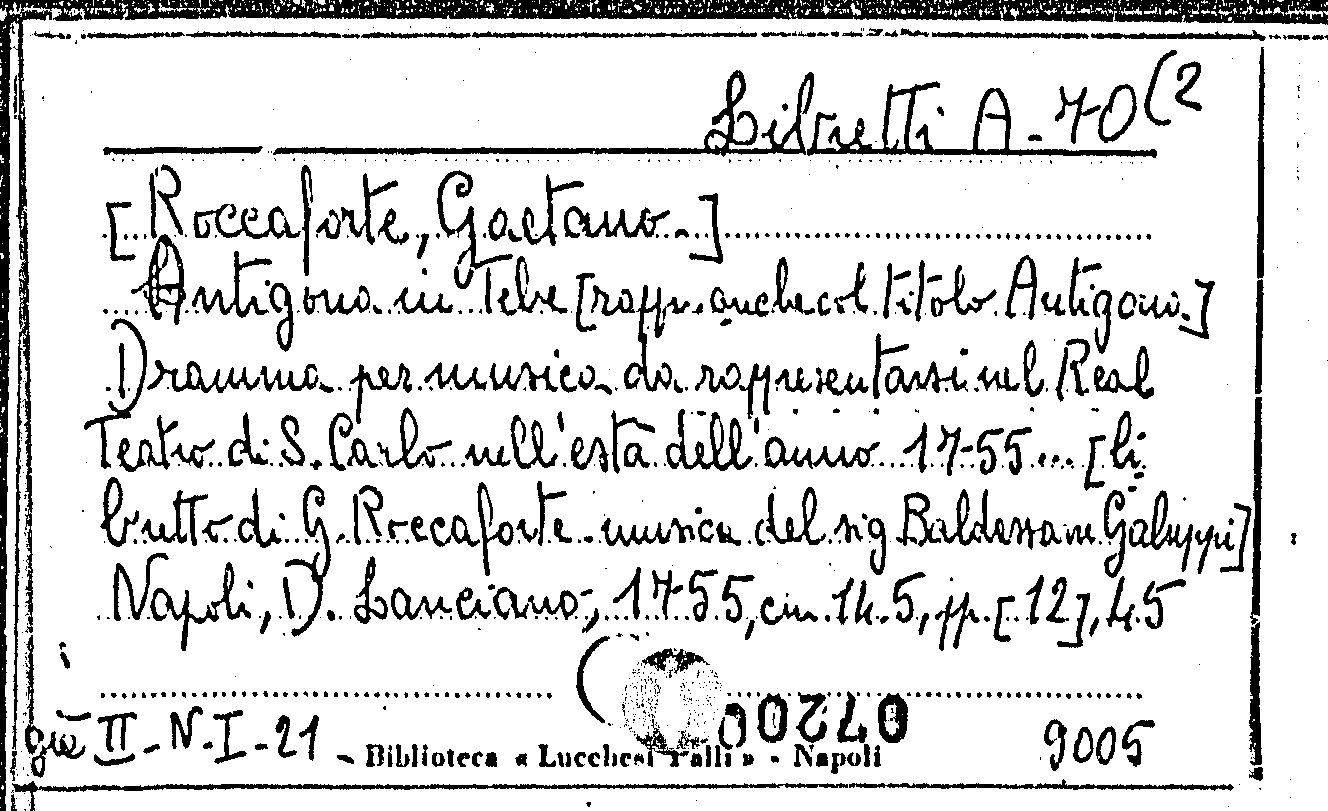 Libretti A-70(2
[Roccaforte, Gaetano.]
Antigona in Tebe [rappr. anche col titolo Antigona.]
Dramma per musica da rappresentarsi nel Real
Teatro di S. Carlo nell'està dell'anno 1755... [li
bretto di G. Roccaforte. musica del sig Baldessare Galuppi]
Napoli, D. Lanciano, 1755, cm. 14.5, pp. [12], 45
già II-N-I-21
Biblioteca « Lucchesi Palli » - Napoli
9005